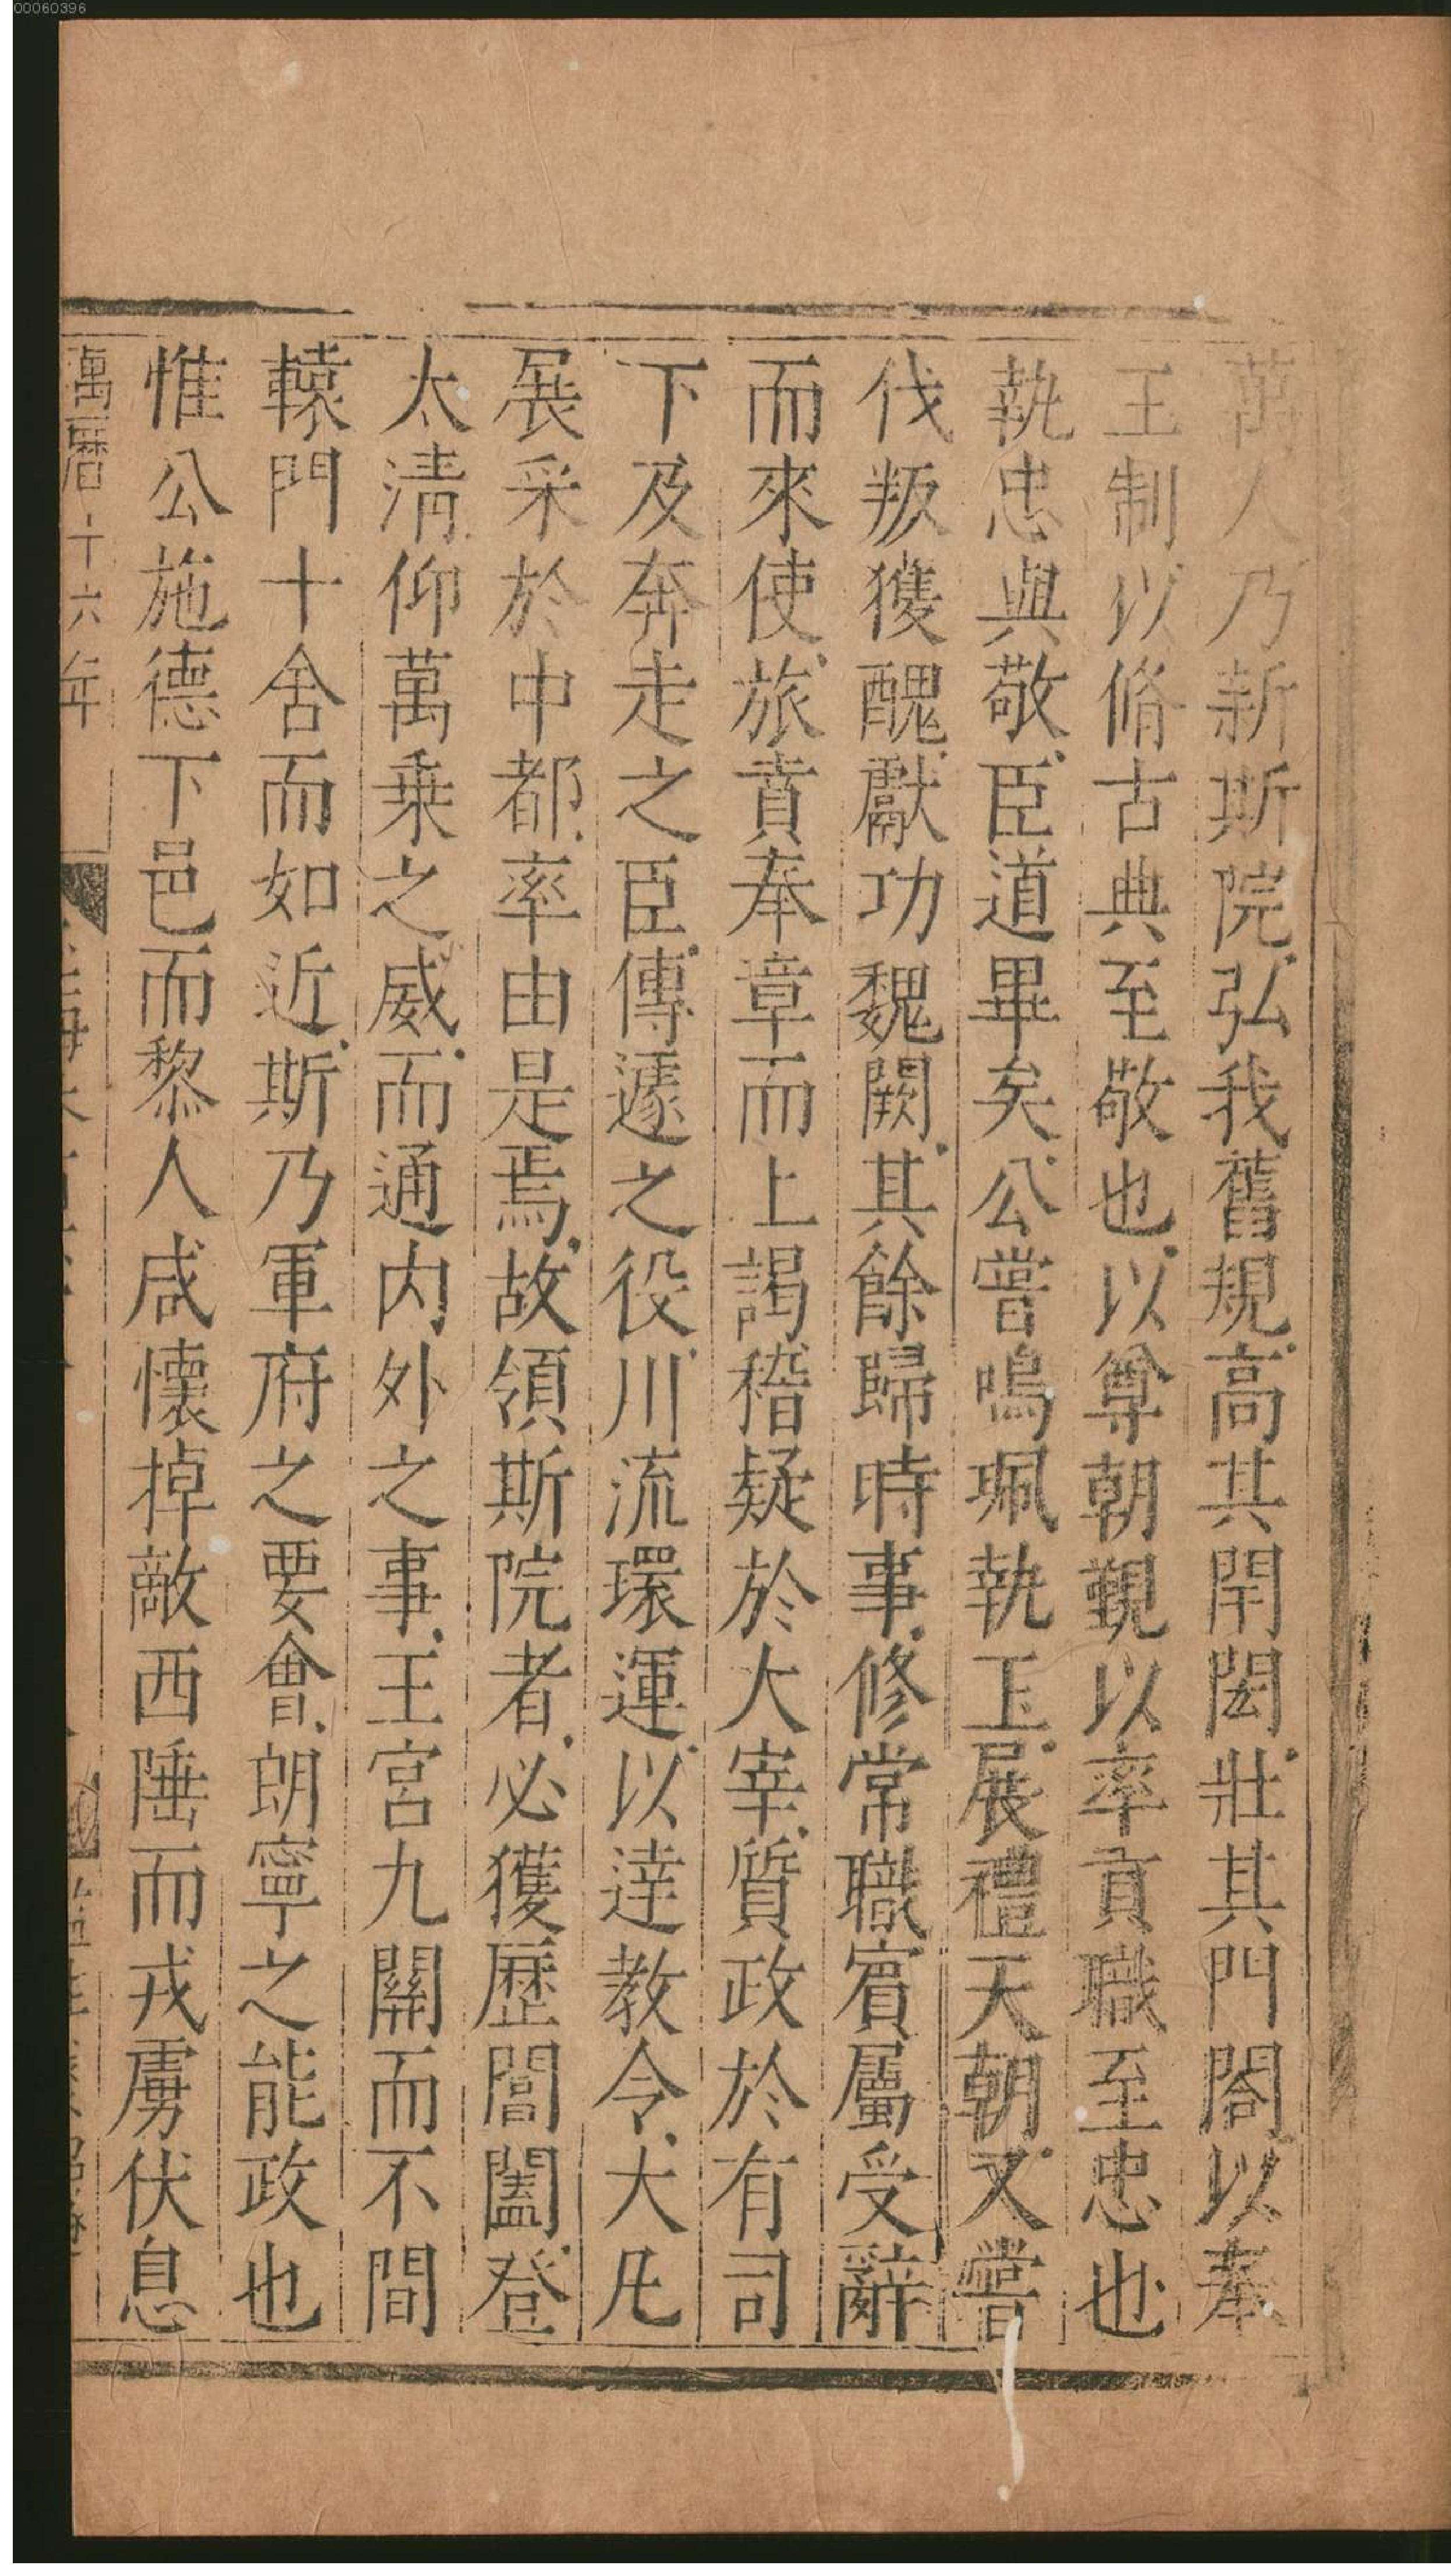 00060396
萬人乃新斯院弘我舊規高其閈閎壯其門閤以奉
王制以脩古典至敬也以尊朝覲以率貢職至忠也
執忠與敬臣道畢矣公嘗鳴珮執玉展禮天朝又嘗
伐叛獲醜獻功魏闕其餘歸時事修常職賓屬受辭
而來使旅賁奉章而上謁稽疑於大宰質政於有司
下及奔走之臣傳遽之役川流環運以達教令大凡
展采於中都率由是焉故領斯院者必獲歷閶闔登
太清仰萬乗之威而通内外之事王宮九關而不間
轅門十舍而如近斯乃軍府之要會朗寧之能政也
惟公施德下邑而黎人咸懷掉敵西陲而戎虜伏息
萬曆十六年